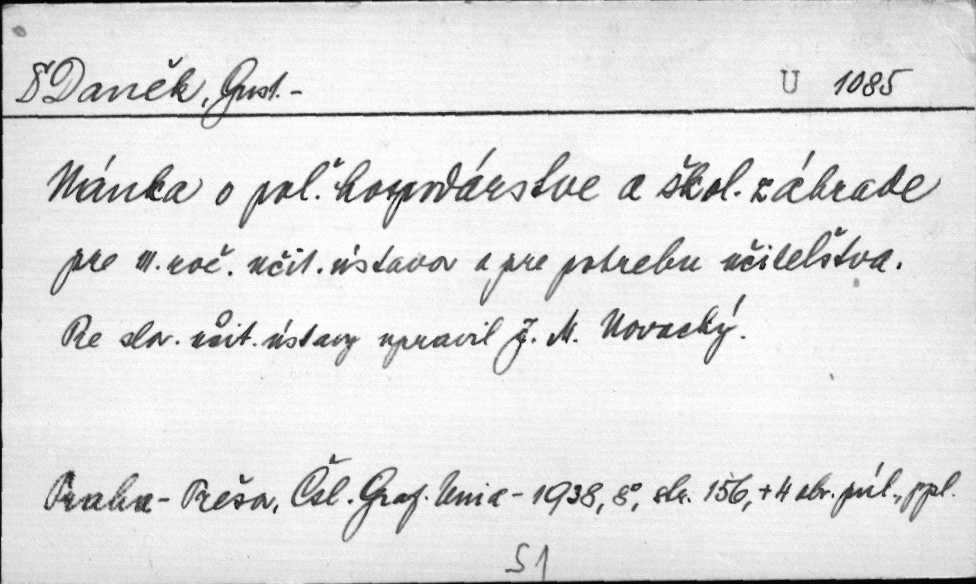 Daněk, Gust. - U 1085
Náuka o poľ. hospodárstve a škol. záhrade
pre III. roč. učit. ústavov a pre potrebu učiteľstva.
Pre slov. učit. ústavy upravil J. M. Novacký.
Praha - Prešov, Čsl. Graf. Unia - 1938, 8°, str. 156, + 4 obr. príl., ppl.
S1